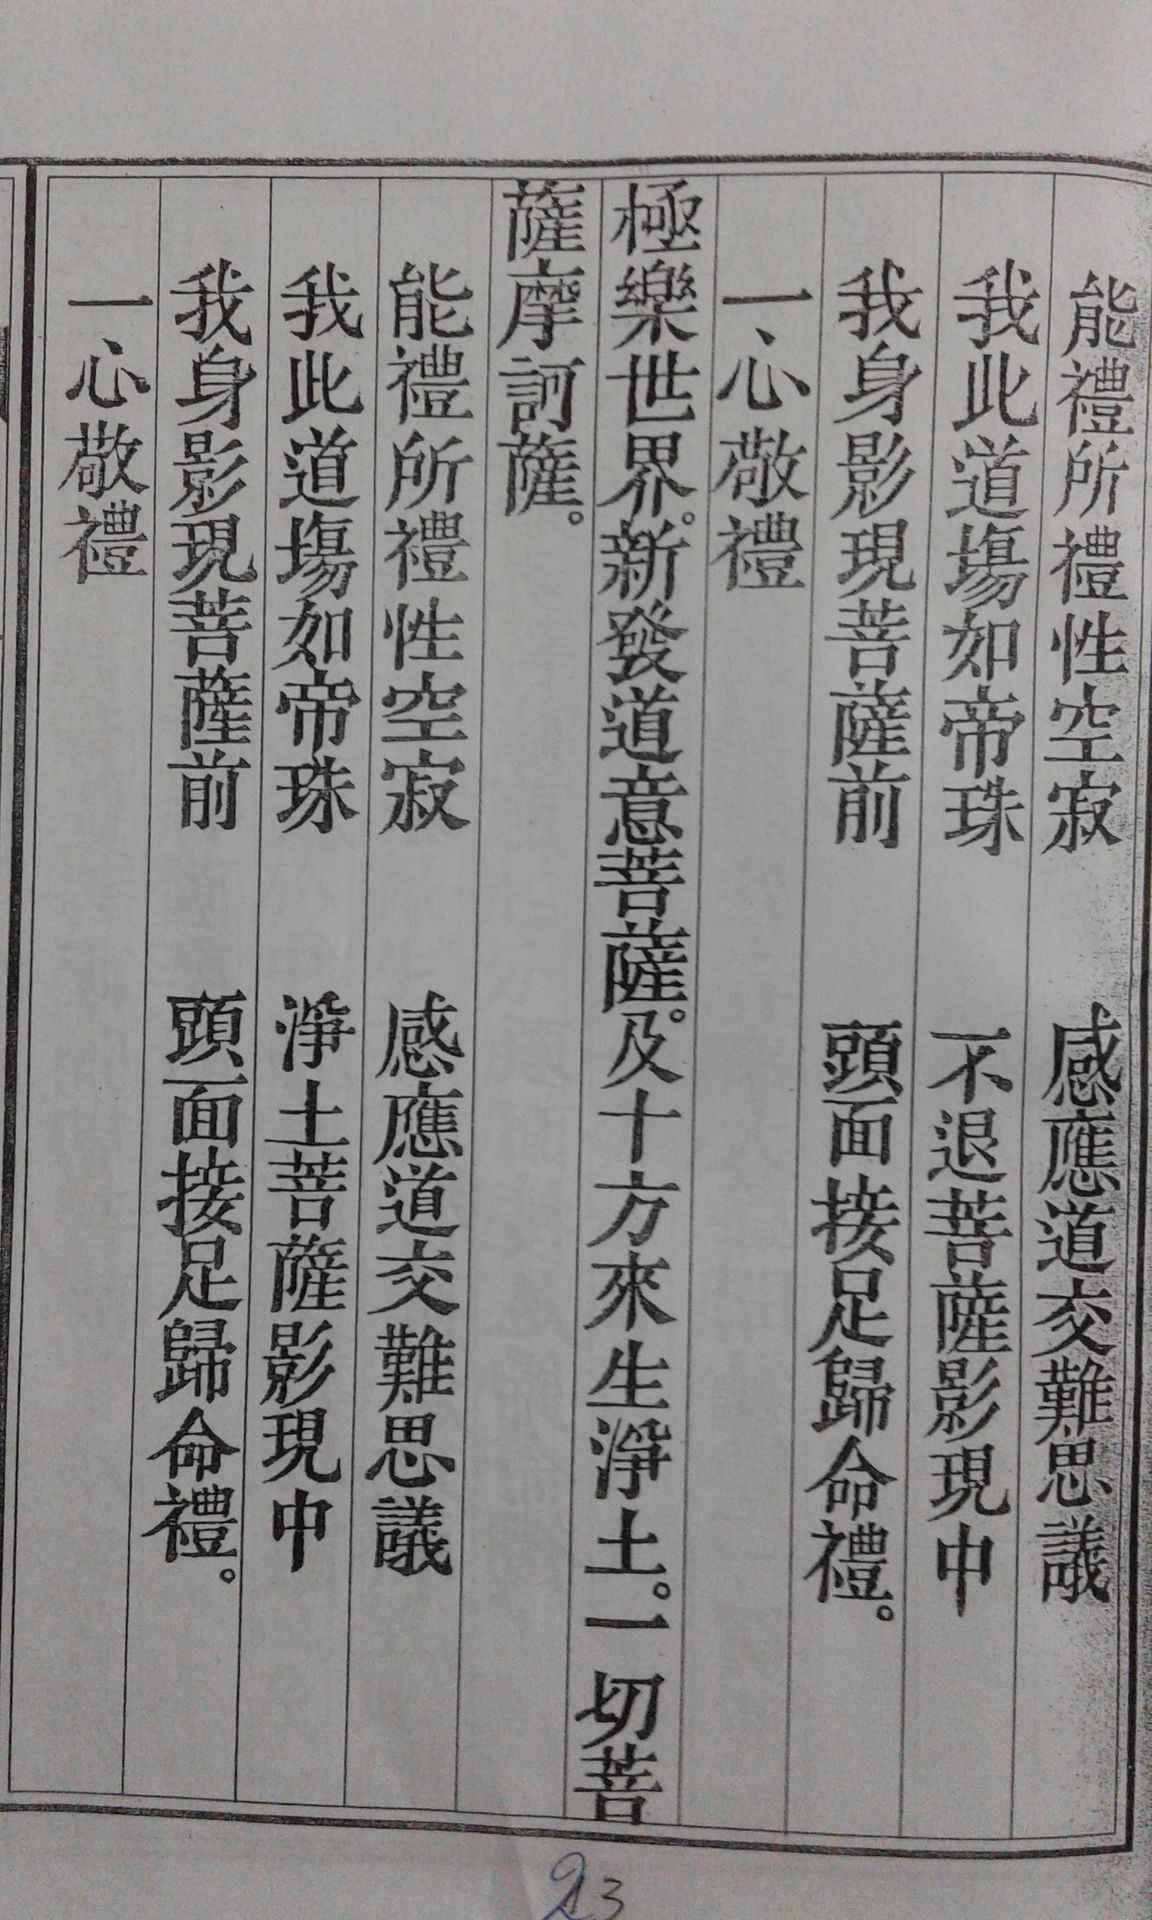 能禮所禮性空寂　感應道交難思議
我此道場如帝珠　不退菩薩影現中
我身影現菩薩前　頭面接足歸命禮。
一心敬禮
極樂世界。新發道意菩薩。及十方來生淨土。一切菩
薩摩訶薩。
能禮所禮性空寂　感應道交難思議
我此道場如帝珠　淨土菩薩影現中
我身影現菩薩前　頭面接足歸命禮。
一心敬禮
23